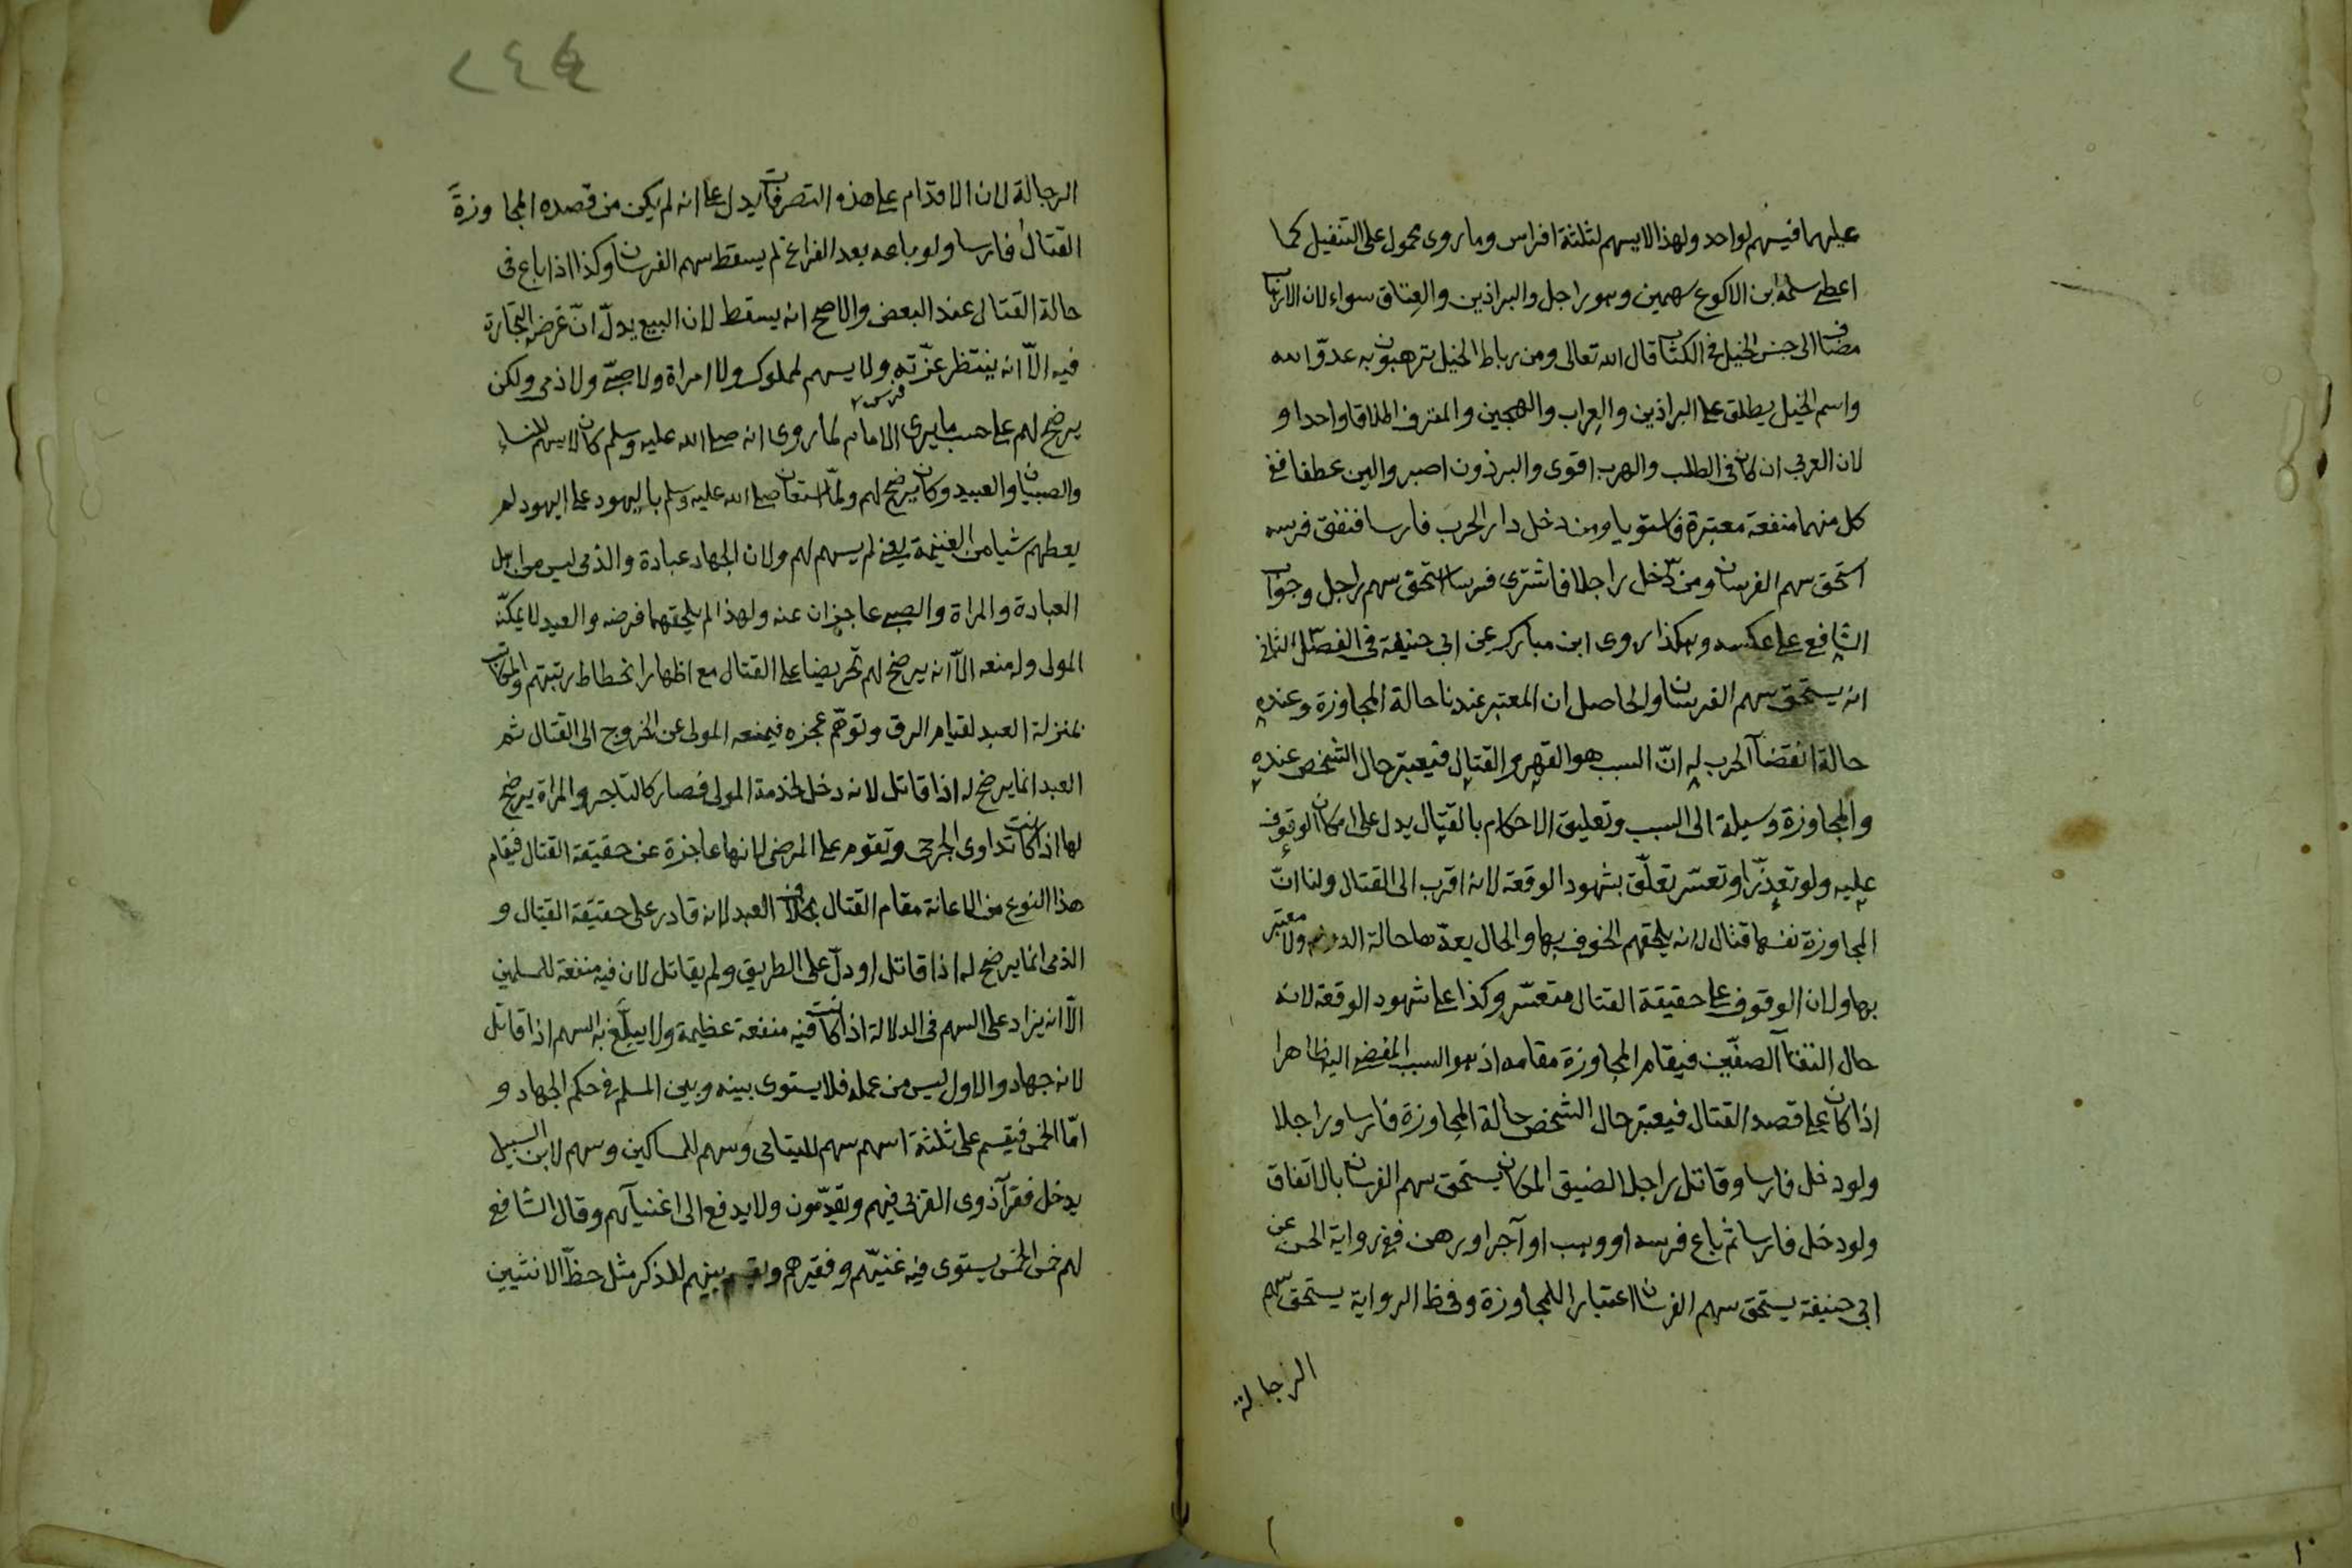 عليهما فيسهم لواحد ولهذا لا يسهم لثلثة افراس وما روى محمول على التنفيل كما
اعطى سلمة ابن الاكوع سهمين وهو راجل والبراذين والعِتاق سواء لان الارهاب
مضاف الى جنس الخيل فى الكتاب قال الله تعالى ومن رباط الخيل ترهبون به عدوّ الله
واسم الخيل يطلق على البراذين والعِراب والهجين والمقرف اطلاقا واحدا و
لان العربى ان كان فى الطلب والهرب اقوى والبرذون اصبر والين عطفا ففى
كل منهما منفعة معتبرة فاستويا ومن دخل دار الحرب فارسا فنفق فرسه
استحق سهم الفرسان ومن دخل راجلا فاشترى فرسا استحق سهم راجل وجواب
الشافعى على عكسه وهكذا روى ابن مبارك عن ابى حنيفة فى الفصل الثانى
انه يستحق سهم الفرسان والحاصل ان المعتبر عندنا حالة المجاوزة وعنده
حالة انقضآ الحرب له انّ السبب هو القهر والقتال فيعتبر حال الشخص عنده
والمجاوزة وسيلة الى السبب وتعليق الاحكام بالقتال يدل على امكان الوقوف
عليه ولو تعذّر او تعسّر تعلّق بشهود الوقعة لانه اقرب الى القتال ولنا انّ
المجاوزة نفسها قتال لانه يلحقهم الخوف بها والحال بعدها حالة الدوام ولا معتبر
بها ولان الوقوف على حقيقة القتال متعسّر وكذا على شهود الوقعة لانه
حال التقآ الصفّين فيقام المجاوزة مقامه اذ هو السبب المفضى اليه ظاهرا
اذا كان على قصد القتال فيعتبر حال الشخص حالة المجاوزة فارسا وراجلا
ولو دخل فارسا وقاتل راجلا لضيق المكان يستحق سهم الفرسان بالاتفاق
ولو دخل فارسا ثم باع فرسه او وهب او آجر او رهن ففى رواية الحسن عن
ابى حنيفة يستحق سهم الفرسان اعتبارا للمجاوزة وفى ظ الرواية يستحق سهم
الرجالة
الرجالة لان الاقدام على هذه التصرفات يدل على انه لم يكن من قصده المجاوزة
القتال فارسا ولو باعه بعد الفراغ لم يسقط سهم الفرسان وكذا اذا باع فى
حالة القتال عند البعض والاصح انه يسقط لان البيع يدلّ انّ غرضه التجارة
فيه الّا انه ينتظر عزّته ولا يسهم لمملوك ولا امراة ولا صبىّ ولا ذمى ولكن
فرس
يرضخ لهم على حسب ما يرى الامام لما روى انه صلى الله عليه وسلم كان لا يسهم للنساء
والصبيان والعبيد وكان يرضخ لهم ولمّا استعان صلى الله عليه وسلم باليهود على اليهود لم
يعطهم شيا من الغنيمة يعنى لم يسهم لهم ولان الجهاد عبادة والذمى ليس من اهل
العبادة والمراة والصبى عاجزان عنه ولهذا لم يلحقهما فرضه والعبد لا يمكّنه
المولى وله منعه الاّ انه يرضخ لهم تحريضا على القتال مع اظهار انحطاط رتبتهم والمكاتب
بمنزلة العبد لقيام الرق وتوهّم عجزه فيمنعه المولى عن الخروج الى القتال ثم
العبد انما يرضخ له اذا قاتل لانه دخل لخدمة المولى فصار كالتاجر والمراة يرضخ
لها اذا كانت تداوى الجرحى وتقوم على المرضى لانها عاجزة عن حقيقة القتال فيقام
هذا النوع من الاعانة مقام القتال بخلاف العبد لانه قادر على حقيقة القتال و
الذمى انما يرضخ له اذا قاتل او دلّ على الطريق ولم يقاتل لان فيه منفعة للمسلمين
الّا انه يزاد على السهم فى الدلالة اذا كانت فيه منفعة عظيمة ولا يبلّغ به السهم اذا قاتل
لانه جهاد والاول ليس من عمله فلا يستوى بينه وبين المسلم فى حكم الجهاد و
امّا الخمس فيقسم على ثلثة اسهم سهم لليتامى وسهم للمساكين وسهم لابن السبيل
يدخل فقرآ ذوى القربى فيهم ويقدّمون ولا يدفع الى اغنيآئهم وقال الشافعى
لهم خمس الخمس يستوى فيه غنيّهم وفقيرهم ويقسم بينهم للذكر مثل حظّ الانثيين